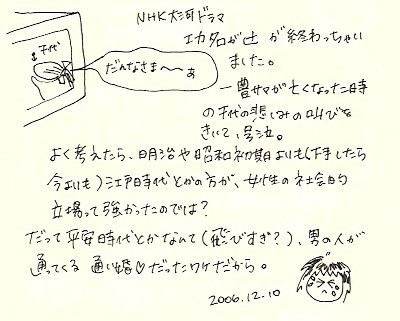 NHK大河ドラマ
功名が辻が終わっちゃい
ました。
千代
だんなさま〜〜ぁ
一豊サマが亡くなった時
の千代の悲しみの叫びを
きいて、号泣。
よく考えたら、明治や昭和初期よりも(下手したら
今よりも)江戸時代とかの方が、女性の社会的
立場って強かったのでは?
だって平安時代とかなんて(飛びすぎ?)、男の人が
通ってくる 通い婚♡だったワケだから。
2006.12.10